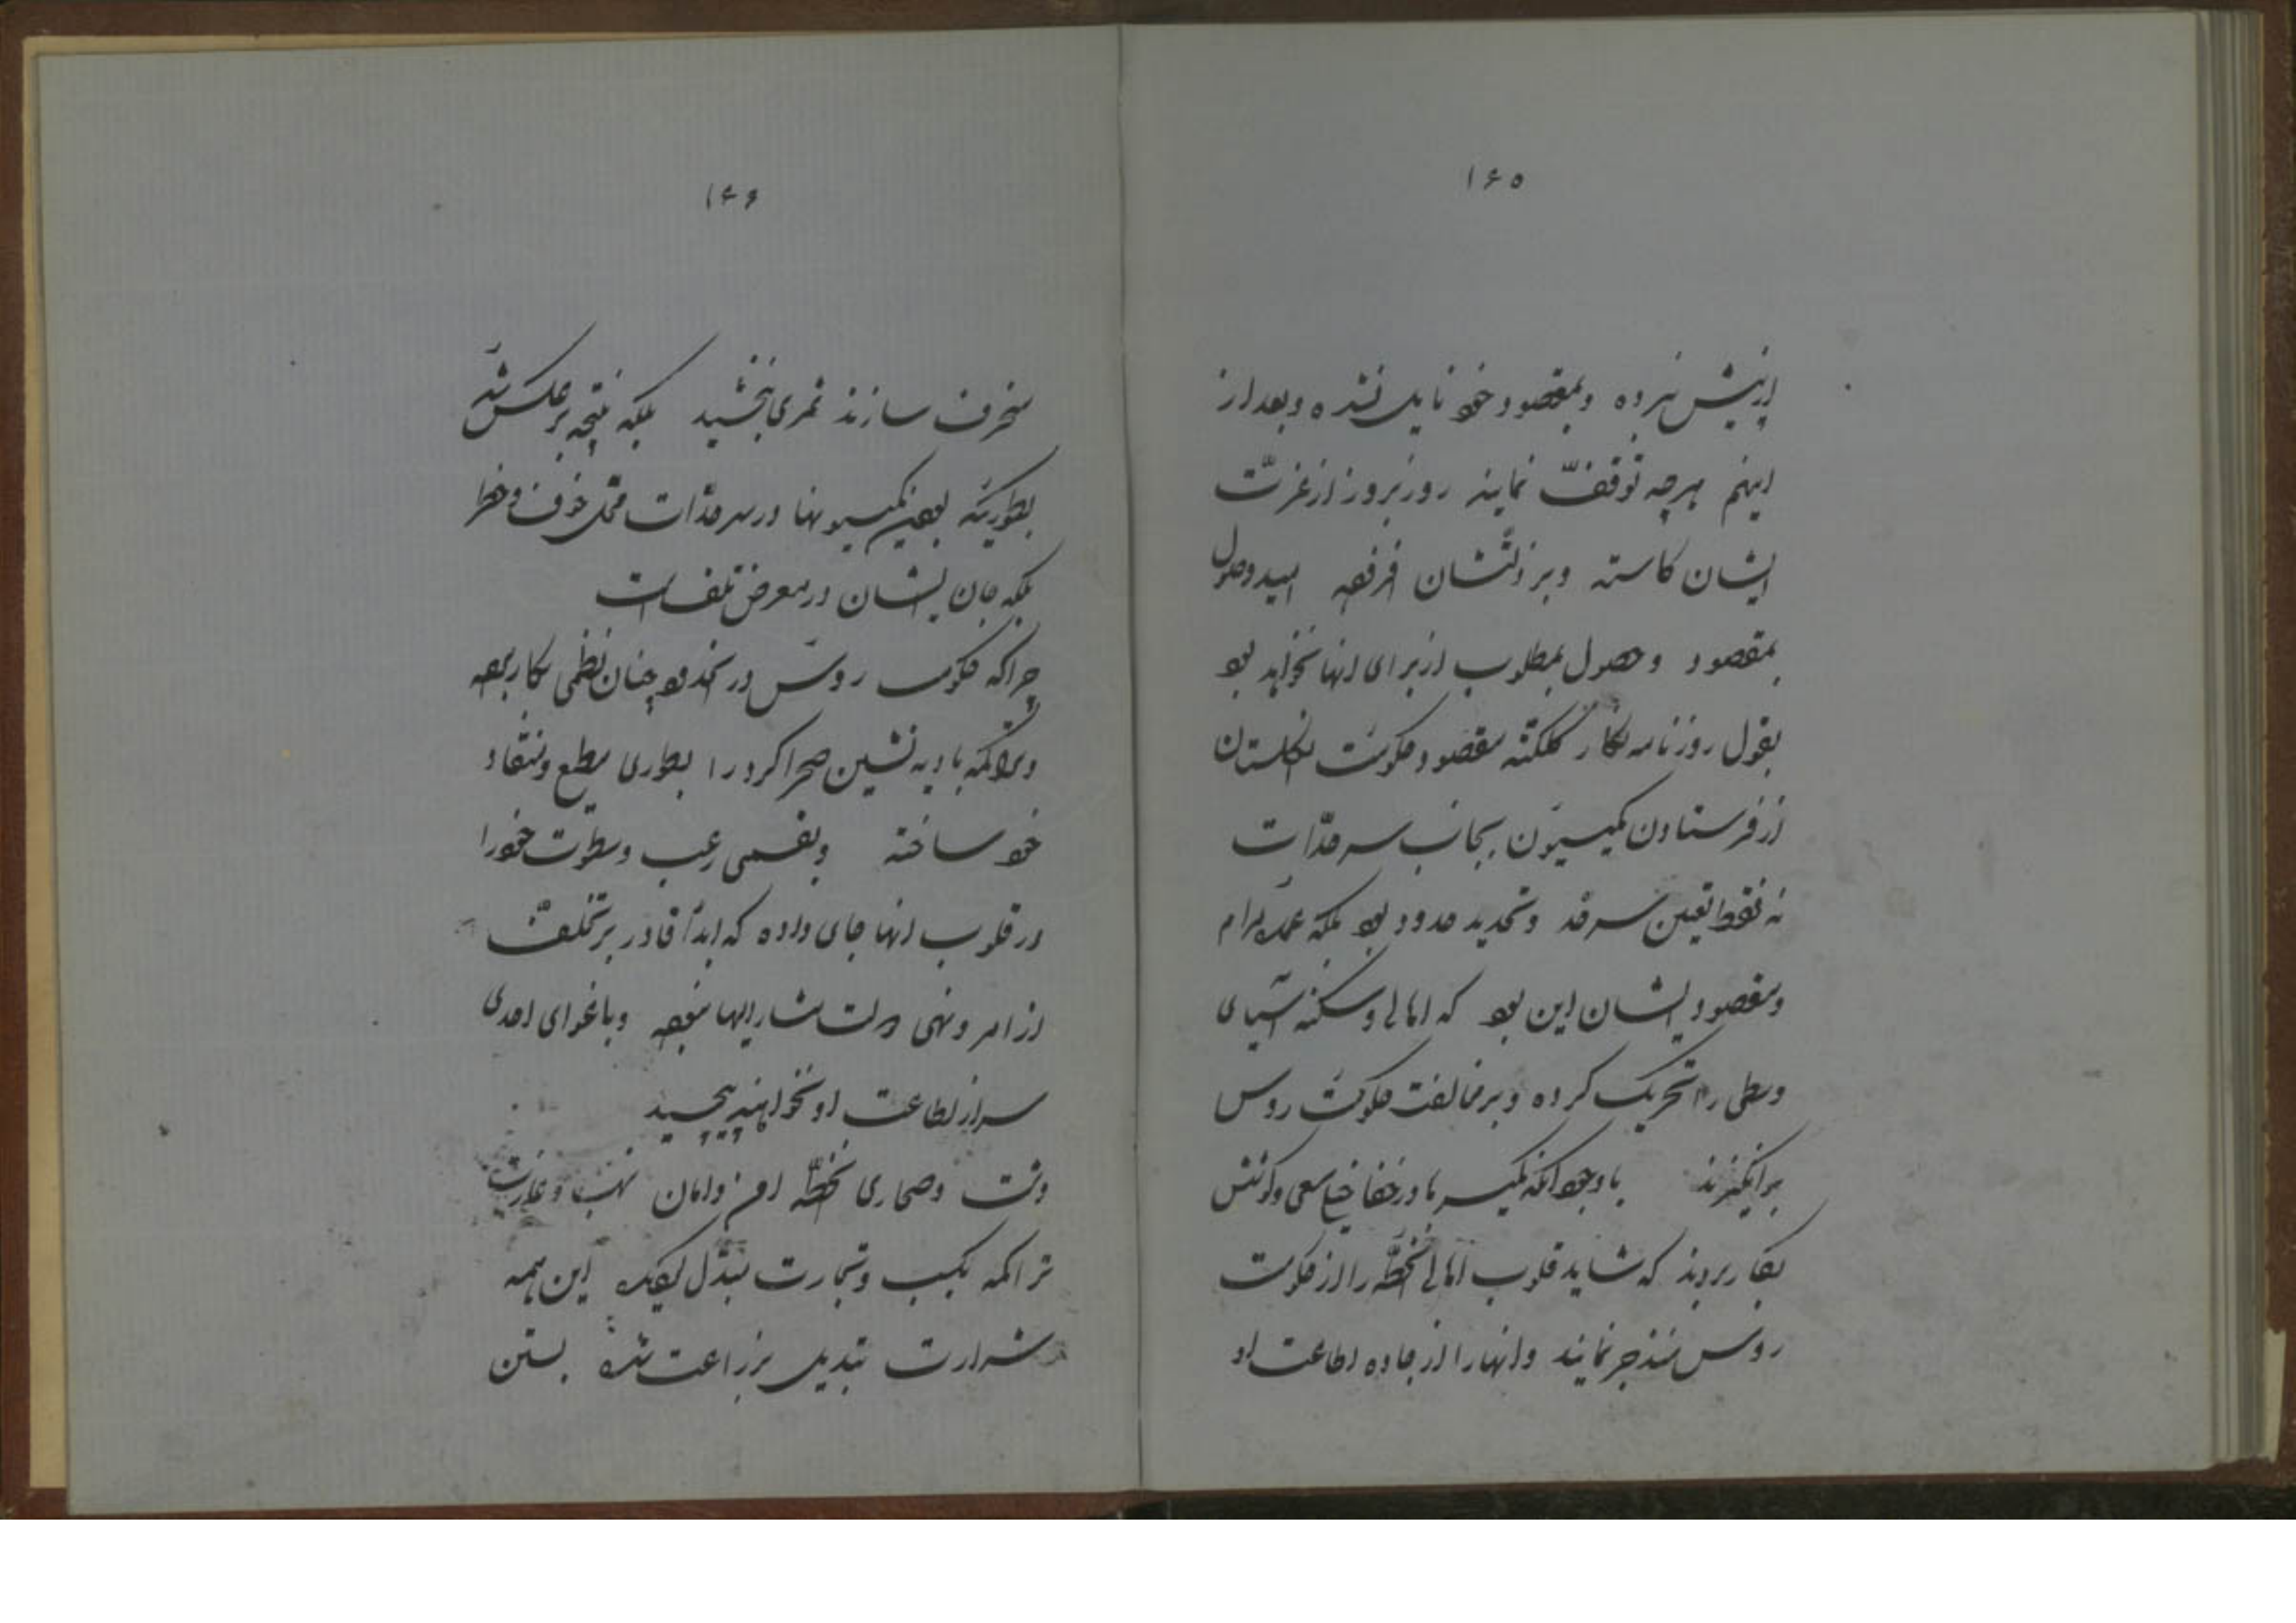 ۱۶۵
از پیش نبرده وبمقصود خود نایل نشده وبعد از
اینهم هرچه توقف نمایند روزبروز از عزت
ایشان کاسته وبر ذلتشان افزوده امید وصول
بمقصود و حصول بمطلوب از برای انها نخواهد بود
بقول روزنامه نکار کلکته مقصود حکومت انکلستان
از فرستادن کمیسیون بجانب سرحدات
نه فقط تعین سرحد وتحدید حدود بود بلکه عمده مرام
ومقصود ایشان این بود که اهالی وسکنه آسیای
وسطی را تحریک کرده وبر مخالفت حکومت روس
برانکیزند باوجود انکه کمیسرها در خفا خیلی سعی وکوشش
بکار بردند که شاید قلوب اهالی انخطه را از حکومت
روس منذجر نمایند وانها را از جاده اطاعت او
۱۶۶
منحرف سازند ثمری نبخشید بلکه نتیجه بر عکس شد
بطوریکه بودن کمیسیونها در سرحدات محل خوف وخطر
بلکه جان ایشان در معرض تلف است
چراکه حکومت روس در حدود چنان نظمی بکار برده
وتراکمه بادیه نشین صحراکرد را بطوری مطیع ومنقاد
خود ساخته وبقسمی رعب وسطوت خود را
در قلوب انها جای داده که ابداً قادر بر تخلف
از امر ونهی دولت مشارالیها نبوده وباغوای احدی
سر از اطاعت او نخواهند پیچید
دشت وصحاری انخطه امن وامان نهب وغارت
تراکمه بکسب وتجارت مبدل این همه
شرارت تبدیل بزراعت شده بستن